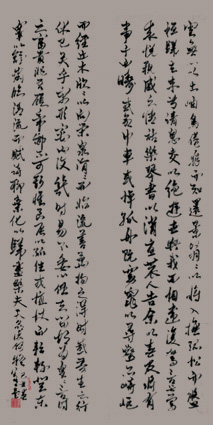 雲無心以出岫鳥倦飛而知還景翳翳以將入撫孤松而盤
桓歸去來兮請息交以絕遊世與我而相遺復駕言兮焉
求悅親戚之情話樂琴書以消憂農人告余以春及將有
事于西疇或命巾車或棹孤舟既窈窕以尋壑亦崎嶇
而經丘木欣欣以向榮泉涓涓而始流善萬物之得時感吾生之行
休已矣乎寓形宇內復幾時曷不委心任去留胡為遑遑欲何
之富貴非吾願帝鄉不可期懷良辰以孤往或植杖而耘耔登東
皋以舒嘯臨清流而賦詩聊乘化以歸盡樂夫天命復奚疑